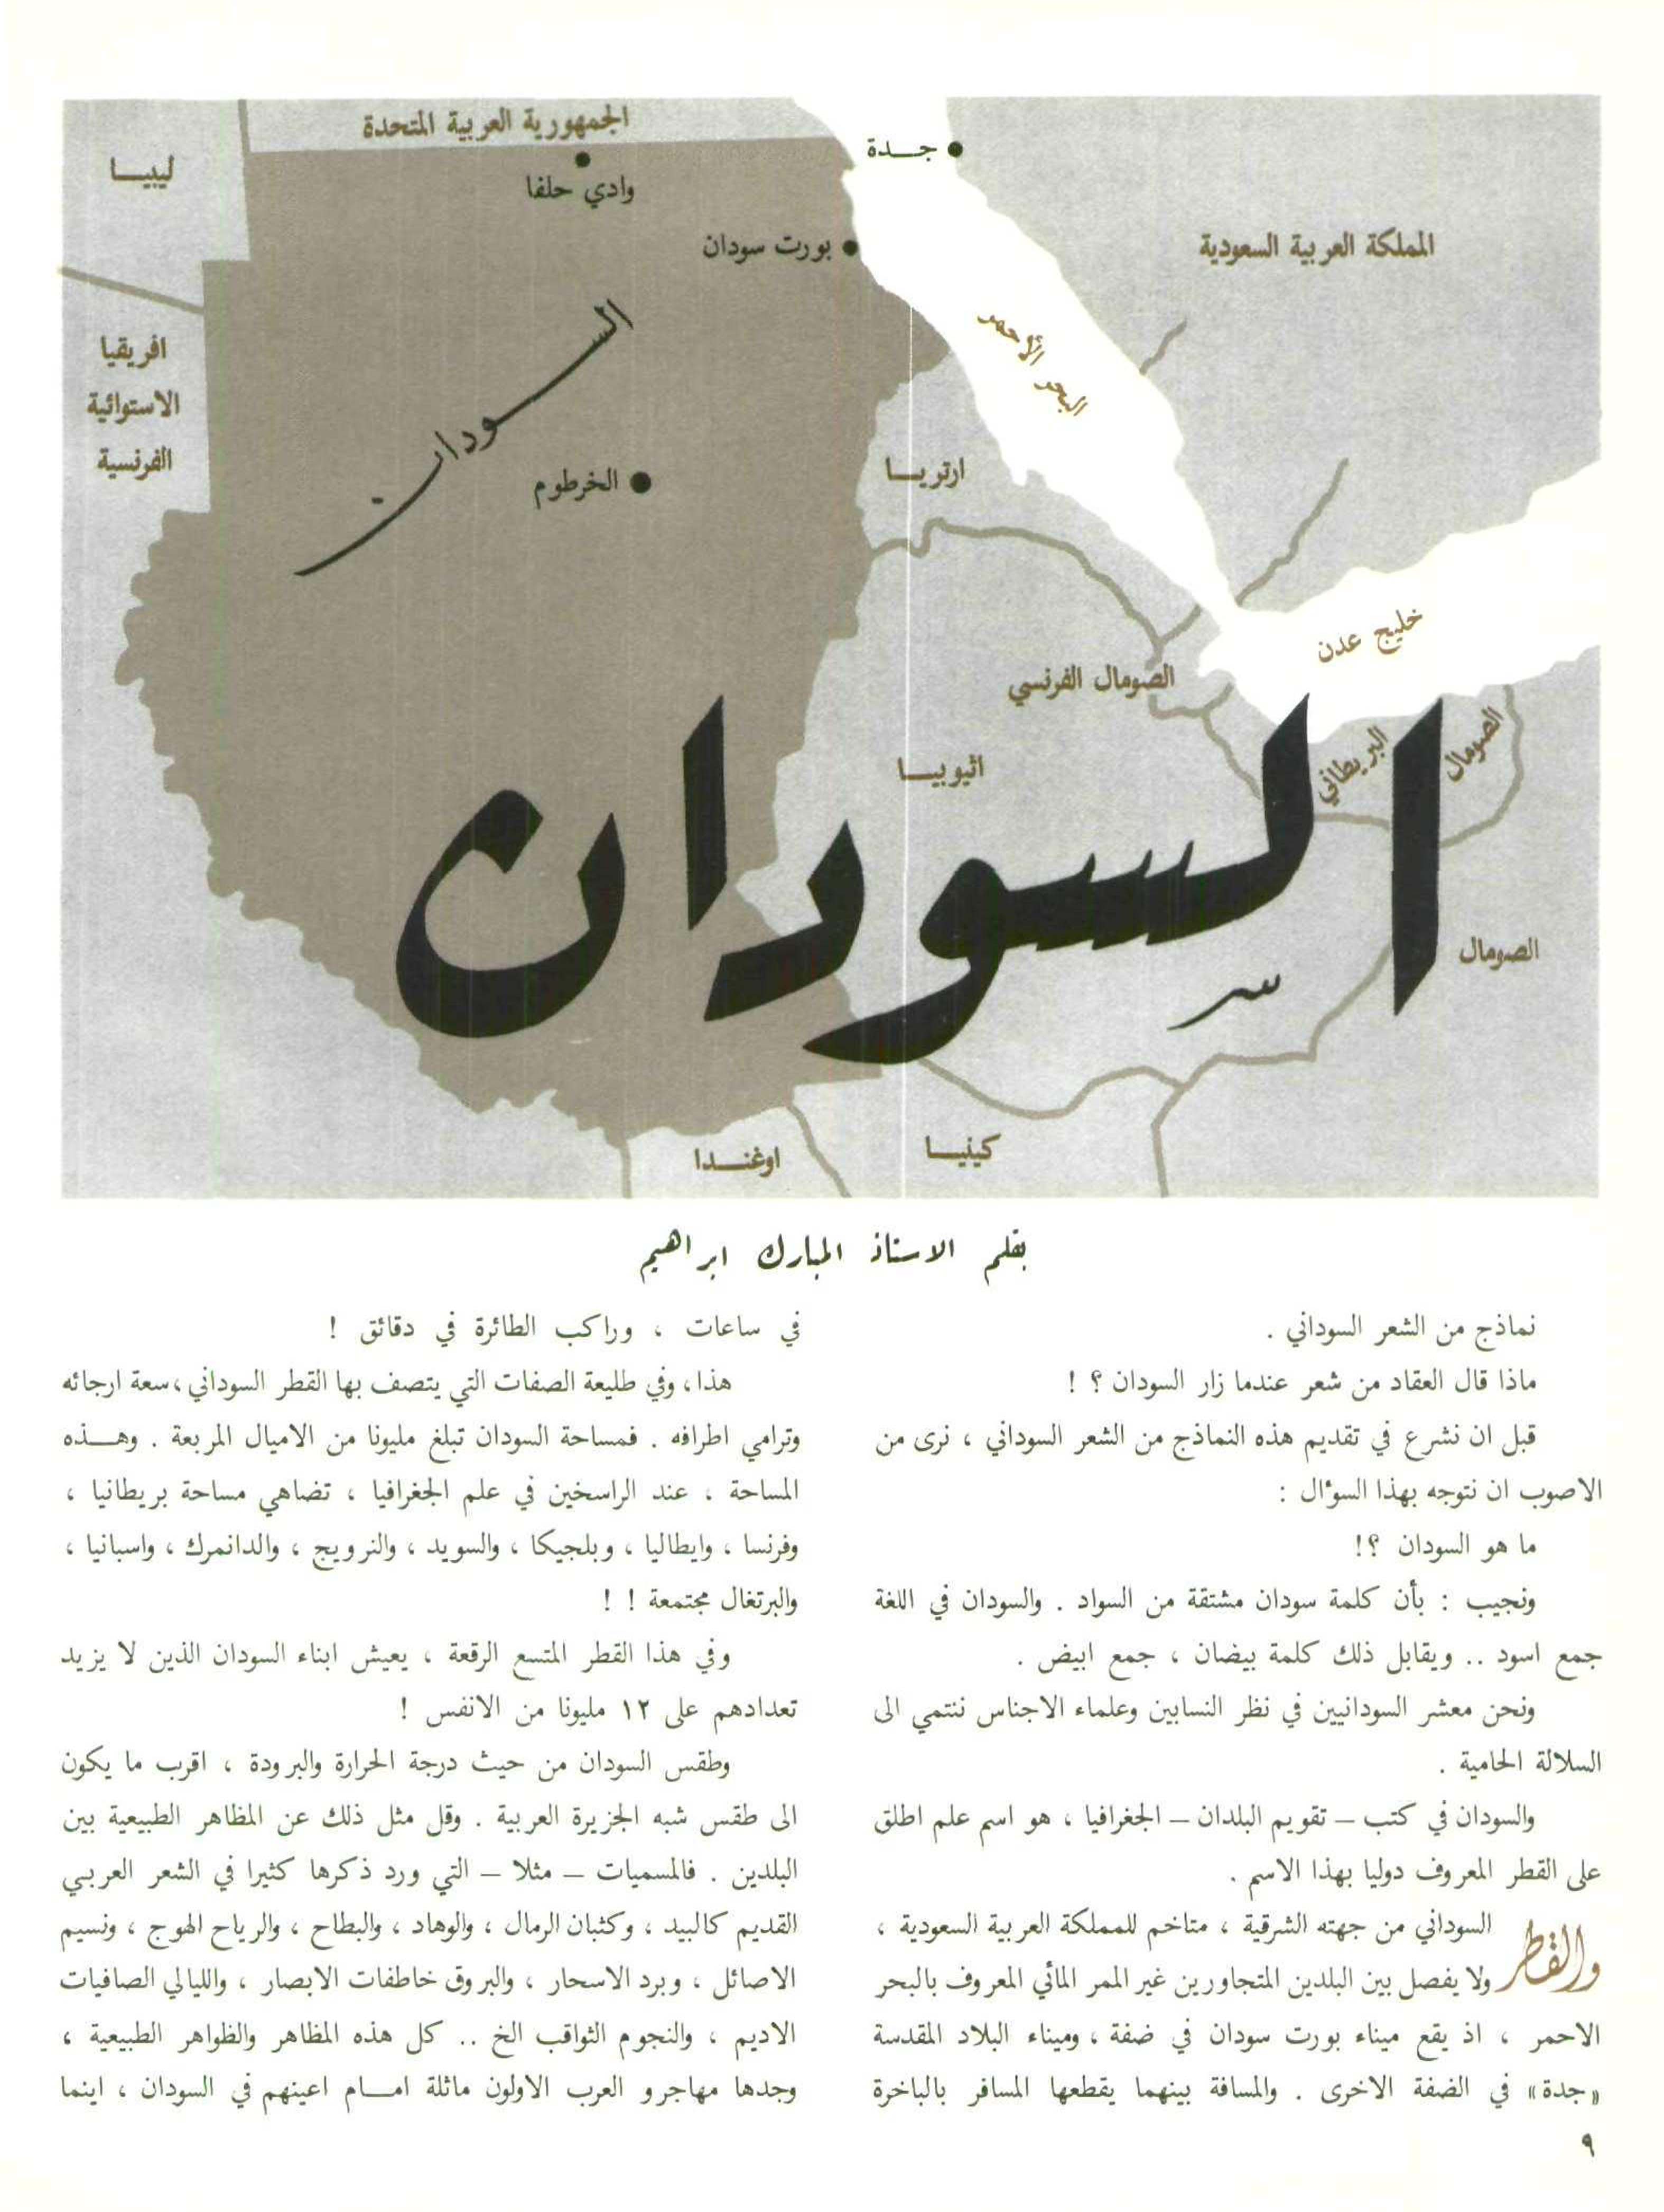 الجمهورية العربية المتحدة
ليبيا
وادي حلفا
جدة
بورت سودان
المملكة العربية السعودية
البحر الأحمر
افريقيا
الاستوائية
الفرنسية
السودان
الخرطوم
ارتريا
خليج عدن
الصومال الفرنسي
الصومال
البريطاني
اثيوبيا
السودان
الصومال
اوغندا
كينيا
بقلم الاستاذ المبارك ابراهيم
نماذج من الشعر السوداني .
ماذا قال العقاد من شعر عندما زار السودان ؟ !
قبل ان نشرع في تقديم هذه النماذج من الشعر السوداني ، نرى من
الاصوب ان نتوجه بهذا السؤال :
ما هو السودان ؟!
ونجيب : بأن كلمة سودان مشتقة من السواد . والسودان في اللغة
جمع اسود .. ويقابل ذلك كلمة بيضان ، جمع ابيض .
ونحن معشر السودانيين في نظر النسابين وعلماء الاجناس ننتمي الى
السلالة الحامية .
والسودان في كتب – تقويم البلدان – الجغرافيا ، هو اسم علم اطلق
على القطر المعروف دوليا بهذا الاسم .
والقطر السوداني من جهته الشرقية ، متاخم للمملكة العربية السعودية ،
ولا يفصل بين البلدين المتجاورين غير الممر المائي المعروف بالبحر
الاحمر ، اذ يقع ميناء بورت سودان في ضفة ، وميناء البلاد المقدسة
«جدة» في الضفة الاخرى . والمسافة بينهما يقطعها المسافر بالباخرة
في ساعات ، وراكب الطائرة في دقائق !
هذا ، وفي طليعة الصفات التي يتصف بها القطر السوداني ، سعة ارجائه
وترامي اطرافه . فمساحة السودان تبلغ مليونا من الاميال المربعة . وهذه
المساحة ، عند الراسخين في علم الجغرافيا ، تضاهي مساحة بريطانيا ،
وفرنسا ، وايطاليا ، وبلجيكا ، والسويد ، والنرويج ، والدانمرك ، واسبانيا ،
والبرتغال مجتمعة ! !
وفي هذا القطر المتسع الرقعة ، يعيش ابناء السودان الذين لا يزيد
تعدادهم على ١٢ مليونا من الانفس !
وطقس السودان من حيث درجة الحرارة والبرودة ، اقرب ما يكون
الى طقس شبه الجزيرة العربية . وقل مثل ذلك عن المظاهر الطبيعية بين
البلدين . فالمسميات – مثلا – التي ورد ذكرها كثيرا في الشعر العربي
القديم كالبيد ، وكثبان الرمال ، والوهاد ، والبطاح ، والرياح الهوج ، ونسيم
الاصائل ، وبرد الاسحار ، والبروق خاطفات الابصار ، والليالي الصافيات
الاديم ، والنجوم الثواقب الخ .. كل هذه المظاهر والظواهر الطبيعية ،
وجدها مهاجرو العرب الاولون ماثلة امام اعينهم في السودان ، اينما
٩